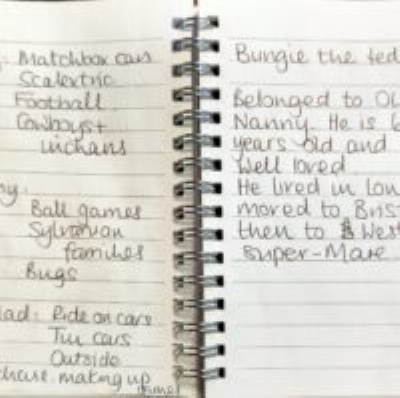 : Matchbox cars
Scalextric
Football
Cowboys +
Indians
ny.
Ball games
Sylvanian
families
Bugs
lad: Ride on cars
Tin cars
Outside
making up
games
Bungie the ted
Belonged to Ol
Nanny. He is 6
years old and
well loved
He lived in Lon
moved to Brist
then to West
super-Mare